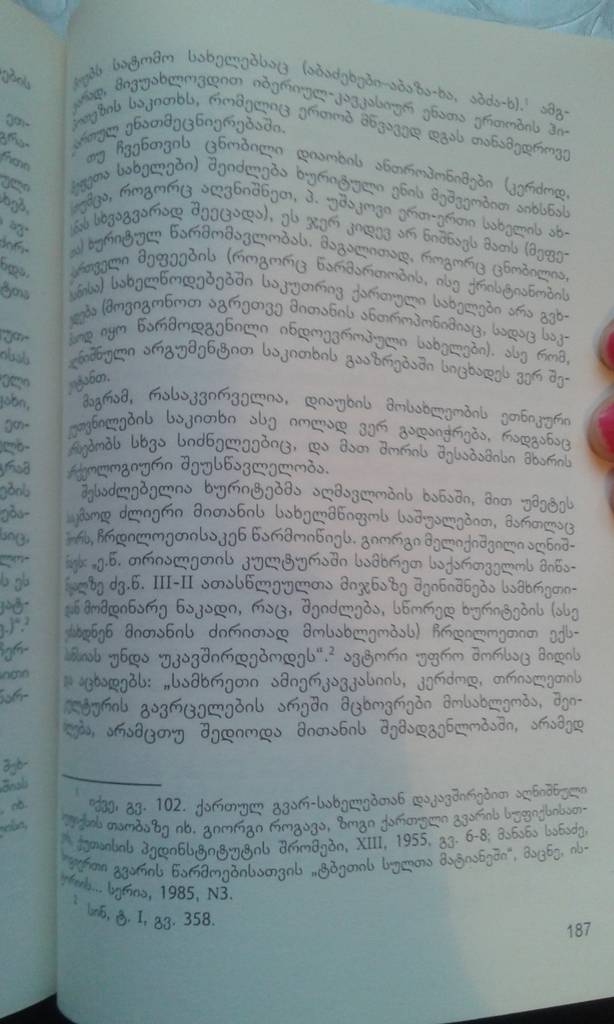 სატომო სახელებსაც (აბაძეხები-აბაზა-ხა, აბძა-ხ).¹ ამგ-
ვარად, მივუახლოვდით იბერიულ-კავკასიურ ენათა ერთობის ჰი-
პოთეზის საკითხს, რომელიც ერთობ მწვავედ დგას თანამედროვე
ქართულ ენათმეცნიერებაში.
თუ ჩვენთვის ცნობილი დიაოხის ანთროპონიმები (კერძოდ,
მეფეთა სახელები) შეიძლება ხურიტული ენის მეშვეობით აიხსნას
(თუმცა, როგორც აღვნიშნეთ, პ. უშაკოვი ერთ-ერთი სახელის ახ-
სნას სხვაგვარად შეეცადა), ეს ჯერ კიდევ არ ნიშნავს მათს (მეფე-
თა) ხურიტულ წარმომავლობას. მაგალითად, როგორც ცნობილია,
ქართველი მეფეების (როგორც წარმართობის, ისე ქრისტიანობის
ხანისა) სახელწოდებებში საკუთრივ ქართული სახელები არა გვხ-
ვდება (მოვიგონოთ აგრეთვე მითანის ანთროპონიმიაც, სადაც საკ-
მაოდ იყო წარმოდგენილი ინდოევროპული სახელები). ასე რომ,
აღნიშნული არგუმენტით საკითხის გააზრებაში სიცხადეს ვერ შე-
ვიტანთ.
მაგრამ, რასაკვირველია, დიაუხის მოსახლეობის ეთნიკური
კუთვნილების საკითხი ასე იოლად ვერ გადაიჭრება, რადგანაც
არსებობს სხვა სიძნელეებიც, და მათ შორის შესაბამისი მხარის
არქეოლოგიური შეუსწავლელობა.
შესაძლებელია ხურიტებმა აღმავლობის ხანაში, მით უმეტეს
საკმაოდ ძლიერი მითანის სახელმწიფოს საშუალებით, მართლაც
შორს, ჩრდილოეთისაკენ წარმოიწიეს. გიორგი მელიქიშვილი აღნიშ-
ნავს: „ე.წ. თრიალეთის კულტურაში სამხრეთ საქართველოს მიწა-
წყალზე ძვ.წ. III-II ათასწლეულთა მიჯნაზე შეინიშნება სამხრეთი-
დან მომდინარე ნაკადი, რაც, შეიძლება, სწორედ ხურიტების (ასე
უხსდნენ მითანის ძირითად მოსახლეობას) ჩრდილოეთით ექს-
პანსიას უნდა უკავშირდებოდეს“.² ავტორი უფრო შორსაც მიდის
და აცხადებს: „სამხრეთი ამიერკავკასიის, კერძოდ, თრიალეთის
კულტურის გავრცელების არეში მცხოვრები მოსახლეობა, შეი-
ძლება, არამცთუ შედიოდა მითანის შემადგენლობაში, არამედ
¹ იქვე, გვ. 102. ქართულ გვარ-სახელებთან დაკავშირებით აღნიშნული
სუფიქსის თაობაზე იხ. გიორგი როგავა, ზოგი ქართული გვარის სუფიქსისათ-
ვის, ქუთაისის პედინსტიტუტის შრომები, XIII, 1955, გვ. 6-8; მანანა სანაძე,
ზოგიერთი გვარის წარმოებისათვის „ტბეთის სულთა მატიანეში“, მაცნე, ის-
ტორიის... სერია, 1985, N3.
² სინ, ტ. I, გვ. 358.
187